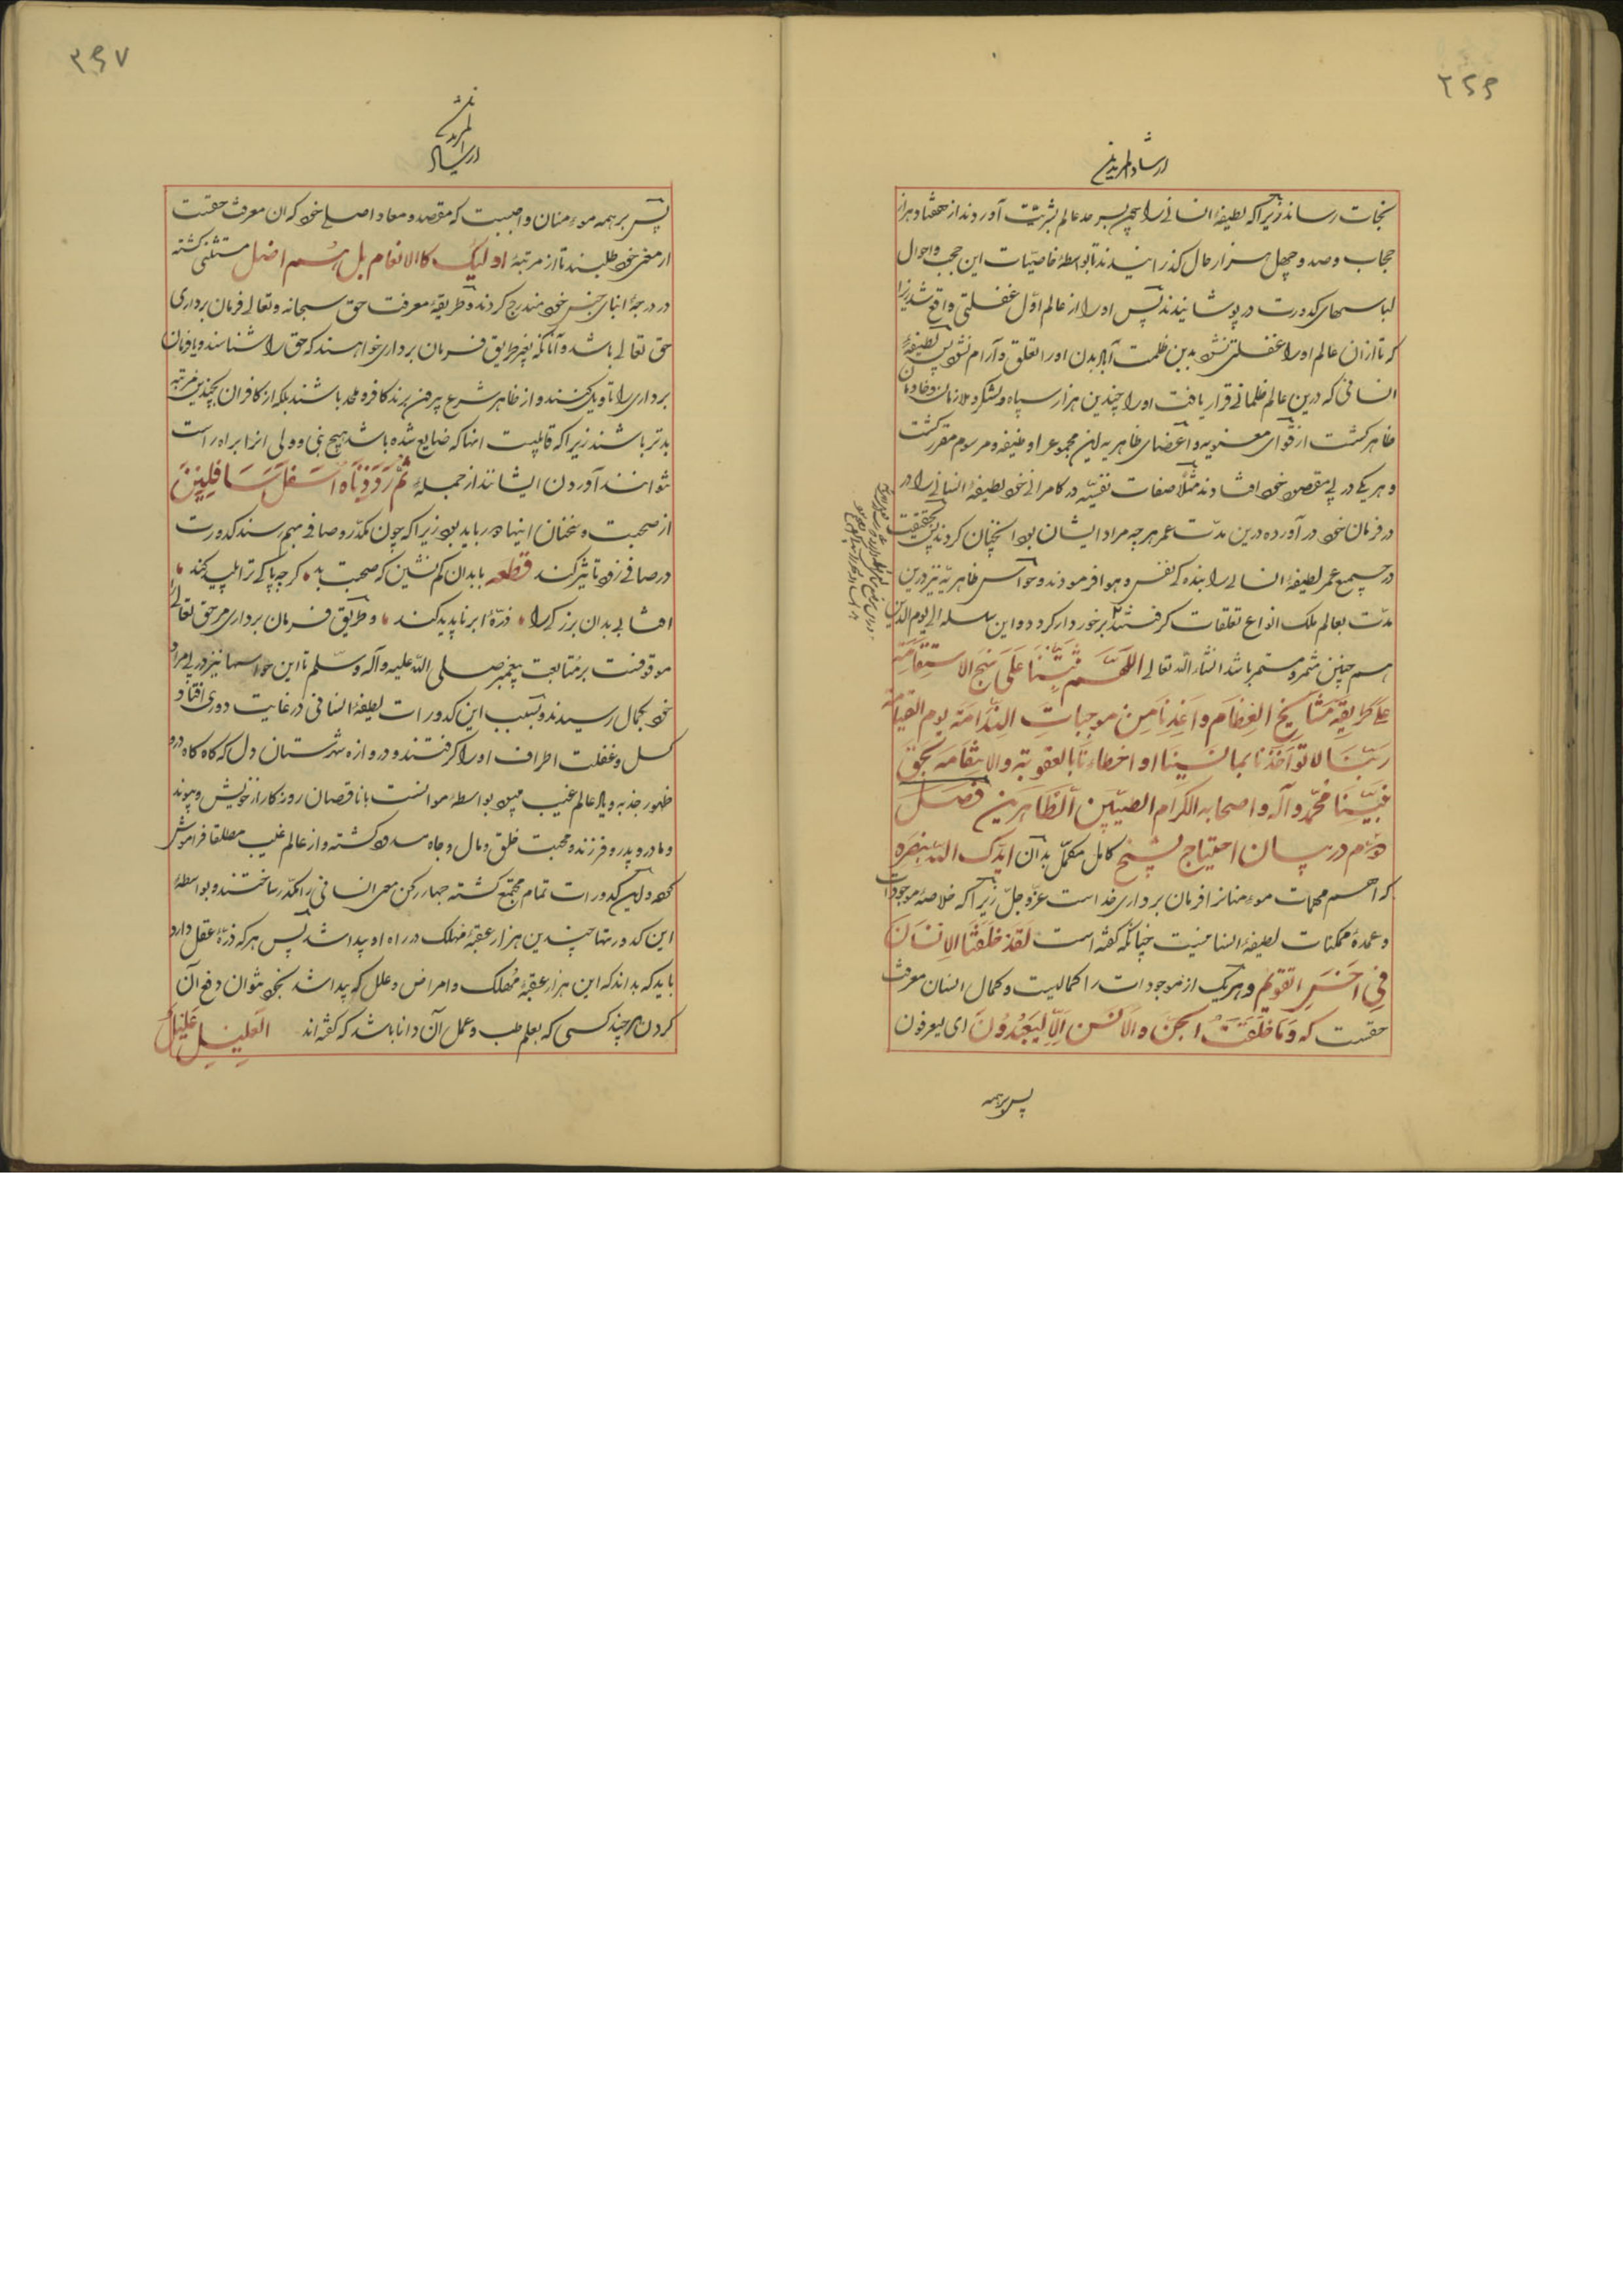 ۲۴۶
ارشاد المریدین
نجات رساند زیرا که لطیفهٔ انسانی را چون بسرحد عالم بشریت آوردند از هفتاد هزار
حجاب و صد و چهل هزار حال گذرانیدند تا بواسطهٔ خاصیات این حجب و احوال
لباسهای کدورت در پوشانیدند پس او را از عالم اوّل غفلتی واقع شد زیرا
که تا از ان عالم او را غفلتی نشود بدین ظلمت آباد بدن او را تعلق و آرام نشود پس لطیفهٔ
انسانی که درین عالم ظلمانی قرار یافت او را چندین هزار سپاه و لشکر و ملازمان و خادمان
ظاهر گشت از قوای معنویه و اعضای ظاهریه این مجموع را وظیفه و مرسوم مقرر گشت
و هر یکی در پی مقصود خود افتادند مثلا صفات نفسیّه در کامرانی خود لطیفهٔ انسانی را در
در فرمان خود در آورده درین مدّت عمر هر چه مراد ایشان بود آنچنان کردند پس بحقیقت
در جمیع عمر لطیفهٔ انسانی را بنده کی نفس و هوا فرمودند و حواس ظاهریه نیز درین
مدّت بعالم ملک انواع تعلقات گرفتند برخوردار کرد و این سلسله الی یوم الدین
هم چنین مثمر و مستمر باشد انشاء الله تعالی اللّهمّ ثبّتنا علی نهج الاستقامة
علی طریقة مشایخ العظام و اعذنا من موجبات الندامة یوم القیامة
ربّنا لا تؤاخذنا بما نسینا او اخطاءنا بالعقوبة والانتقامة بحق
نبیّنا محمّد و آله و اصحابه الکرام الطیّبین الطّاهرین فصل
دوّم در بیان احتیاج بشیخ کامل مکمّل بدان ایّدک الله بنصره
که اهم مهمات مومنانرا فرمان برداری خداست عزّ و جلّ زیرا که خلاصهٔ موجودات
و عمدهٔ ممکنات لطیفهٔ انسانیست چنانکه گفته است لقد خلقنا الانسان
فی احسن التقویم و هر یک از موجودات را کمالیت و کمال انسان معرفت
حقست که و ما خلقت الجنّ والانس الّا لیعبدون ای لیعرفون
پس بر همه
۲۴۷
ارشاد المریدین
پس بر همه مومنان واجبست که مقصد و معاد اصلی خود که ان معرفت حقست
از مغز خود طلبند تا از مرتبهٔ اولئک کالانعام بل هم اضل مستثنی گشته
در درجهٔ ابنای جنس خود مندرج کردند و طریقهٔ معرفت حق سبحانه و تعالی فرمان برداری
حق تعالی باشد و آنانکه بغیر طریق فرمان برداری خواهند که حق را شناسند و یا فرمان
برداری را تاویل کنند و از ظاهر شرع بیرون برند کافر و ملحد باشند بلکه از کافران بچندین مرتبه
بدتر باشند زیرا که قابلیت انها که ضایع شده باشد هیچ نبی و ولی انرا براه راست
نتوانند آوردن ایشانند از جملهٔ ثمّ رددناه اسفل سافلین
از صحبت و سخنان اینها دور باید بود زیرا که چون مکدّر و صافی بهم رسند کدورت
در صافی زود تاثیر کند قطعه با بدان کم نشین که صحبت بد گرچه پاکی ترا پلید کند
افتابی بدان بزرگی را ذرّهٔ ابر ناپدید کند و طریق فرمان برداری مر حق تعالی
موقوفست بر متابعت پیغمبر صلی الله علیه و آله و سلّم تا این حواسها نیز در پی مراد
خود بکمال رسیدند و بسبب این کدورات لطیفهٔ انسانی در غایت دوری افتاد و
کسل و غفلت اطراف او را گرفتند و دروازه شهرستان دل که گاه گاه درو
ظهور جذبه و یاد عالم غیب میبود بواسطهٔ موانست با ناقصان روزگار از خویش و پیوند
و مادر و پدر و فرزند و محبت خلق و مال و جاه مسدود گشته و از عالم غیب مطلقا فراموش
کرد و این کدورات تمام مجتمع گشته چهار رکن معبر انسانی را مکدّر ساختند و بواسطهٔ
این کدورتها چندین هزار عقبهٔ مهلک در راه او پیدا شد پس هر که ذرّهٔ عقل دارد
باید که بداند که این هزار عقبهٔ مهلک و امراض و علل که پیدا شد بخود نتوان دفع آن
کردن هر چند کسی که بعلم طب و عمل آن دانا باشد که گفته اند العلیل علیل